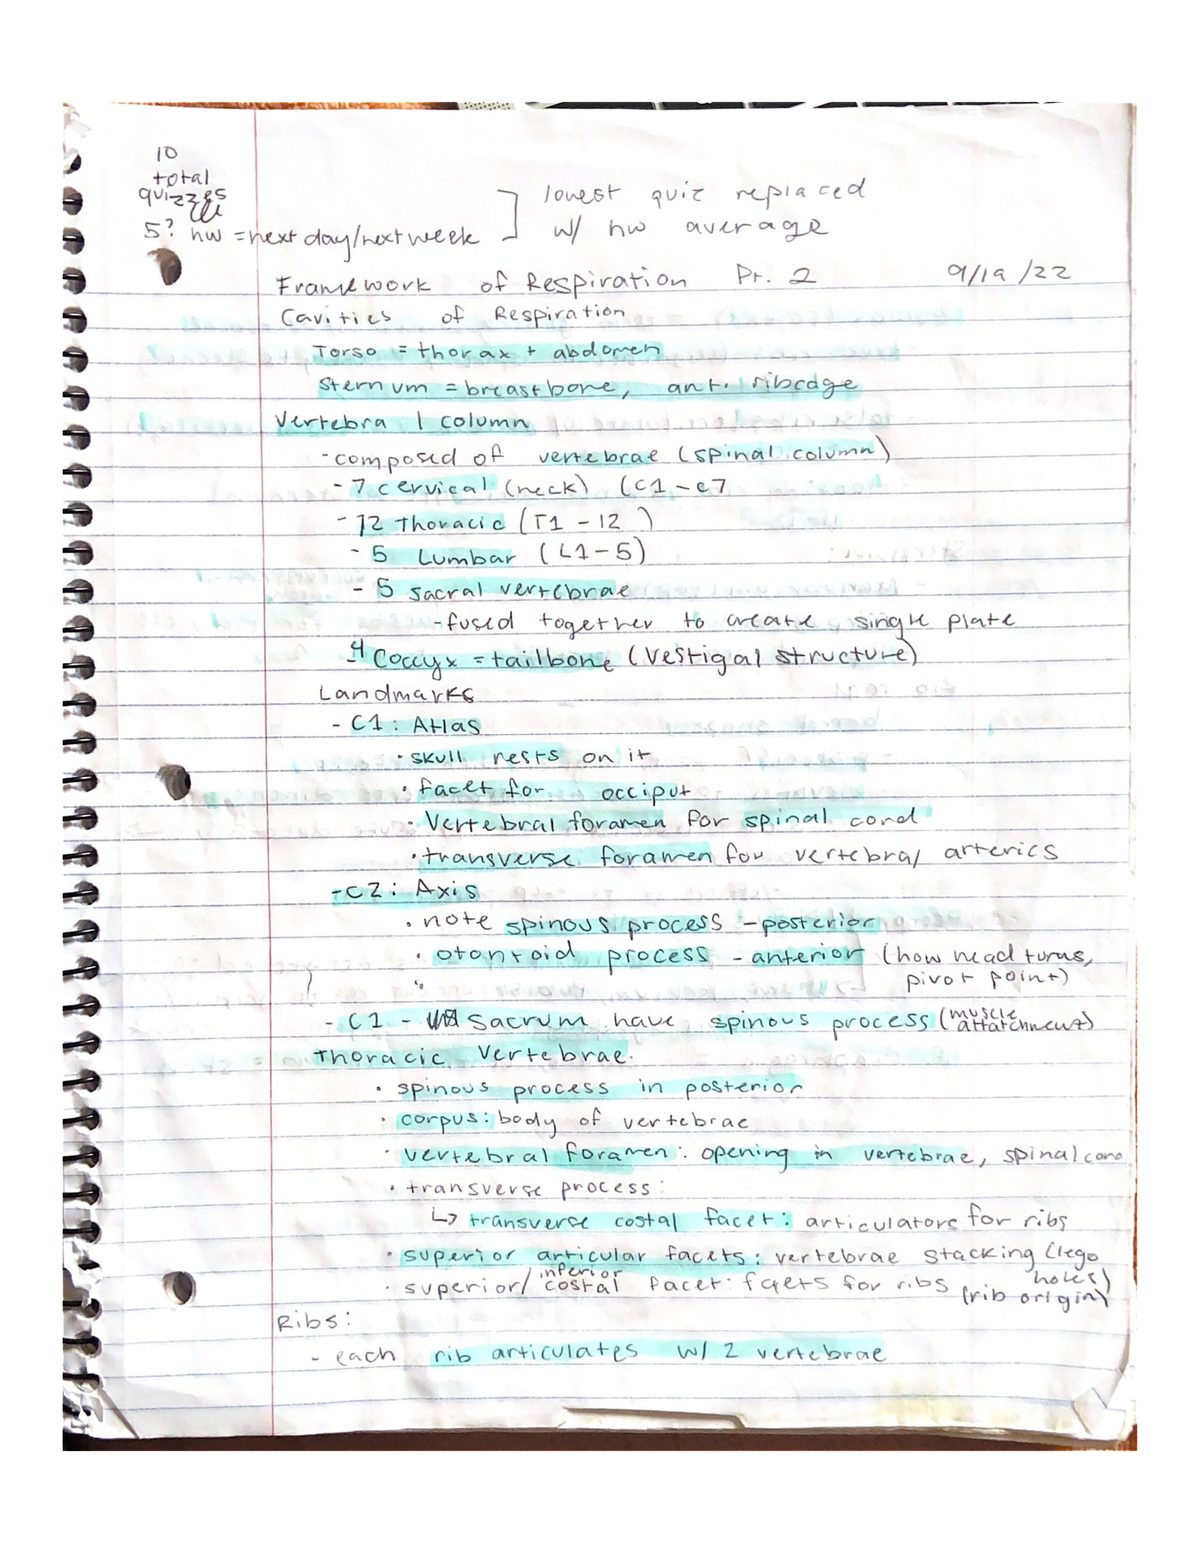 10
total
quizzes
5? hw = next day/next week
lowest quiz replaced
w/ hw average
Framework of Respiration Pt. 2 9/19/22
Cavities of Respiration
Torso = thorax + abdomen
Sternum = breastbone, ant. ribcage
Vertebral column
- composed of vertebrae (spinal column)
- 7 cervical (neck) (C1-C7
- 12 thoracic (T1 - 12)
- 5 Lumbar (L1-5)
- 5 sacral vertebrae
- fused together to create single plate
- 4 Coccyx = tailbone (vestigal structure)
Landmarks
- C1: Atlas
· skull rests on it
· facet for occiput
· Vertebral foramen for spinal cord
· transverse foramen for vertebral arteries
- C2: Axis
· note spinous process - posterior
· otontoid process - anterior (how head turns,
pivot point)
- C1 - Sacrum have spinous process (muscle
attatchment)
Thoracic Vertebrae:
· spinous process in posterior
· corpus: body of vertebrae
· vertebral foramen: opening in vertebrae, spinal cord
· transverse process:
↳ transverse costal facet: articulators for ribs
· superior articular facets: vertebrae stacking (lego
holes)
· superior/inferior costal facet: facets for ribs (rib origin)
Ribs:
- each rib articulates w/ 2 vertebrae